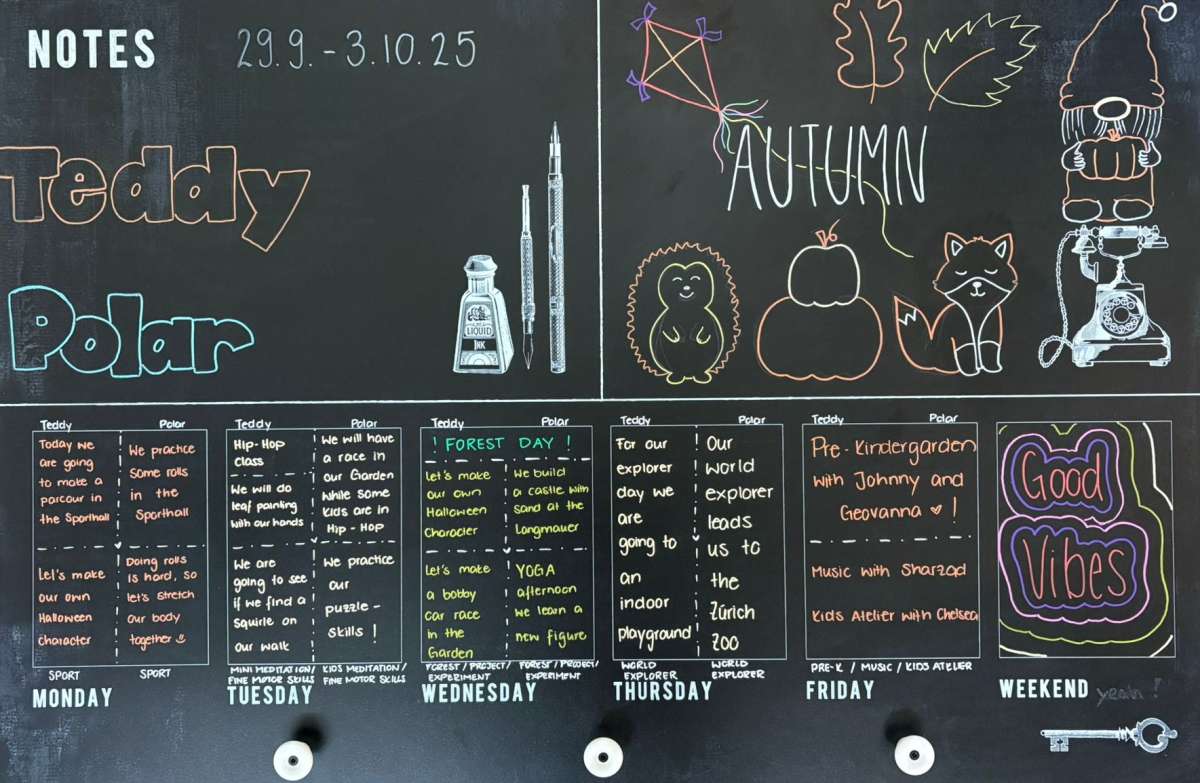 NOTES
29.9.-3.10.25
Teddy
Polar
LIQUID
INK
AUTUMN
Teddy
Today we
are going
to make a
parcour in
the Sporthall
Let's make
our own
Halloween
character
SPORT
Polar
We practice
some rolls
in the
Sporthall
Doing rolls
is hard, so
let's stretch
our body
together
SPORT
MONDAY
Teddy
Hip-Hop
class
We will do
leaf painting
with our hands
We are
going to see
if we find a
squirle on
our walk
MINI MEDITATION/
FINE MOTOR SKILLS
Polar
We will have
a race in
our Garden
while some
kids are in
Hip-Hop
We practice
our
puzzle-
skills !
KIDS MEDITATION/
FINE MOTOR SKILLS
TUESDAY
Teddy
Polar
! FOREST DAY !
let's make
our own
Halloween
Character
Let's make
a bobby
car race
in the
Garden
FOREST/PROJECT/
EXPERIMENT
We build
a castle with
sand at the
Langmauer
YOGA
afternoon
we learn a
new figure
FOREST/PROJECT/
EXPERIMENT
WEDNESDAY
Teddy
For our
explorer
day we
are
going to
an
indoor
playground
WORLD
EXPLORER
Polar
Our
world
explorer
leads
us to
the
Zürich
Zoo
WORLD
EXPLORER
THURSDAY
Teddy
Polar
Pre-Kindergarden
with Johnny and
Geovanna !
Music with Sharzad
Kids Atelier with Chelsea
PRE-K / MUSIC / KIDS ATELIER
FRIDAY
Good
Vibes
WEEKEND yeah !